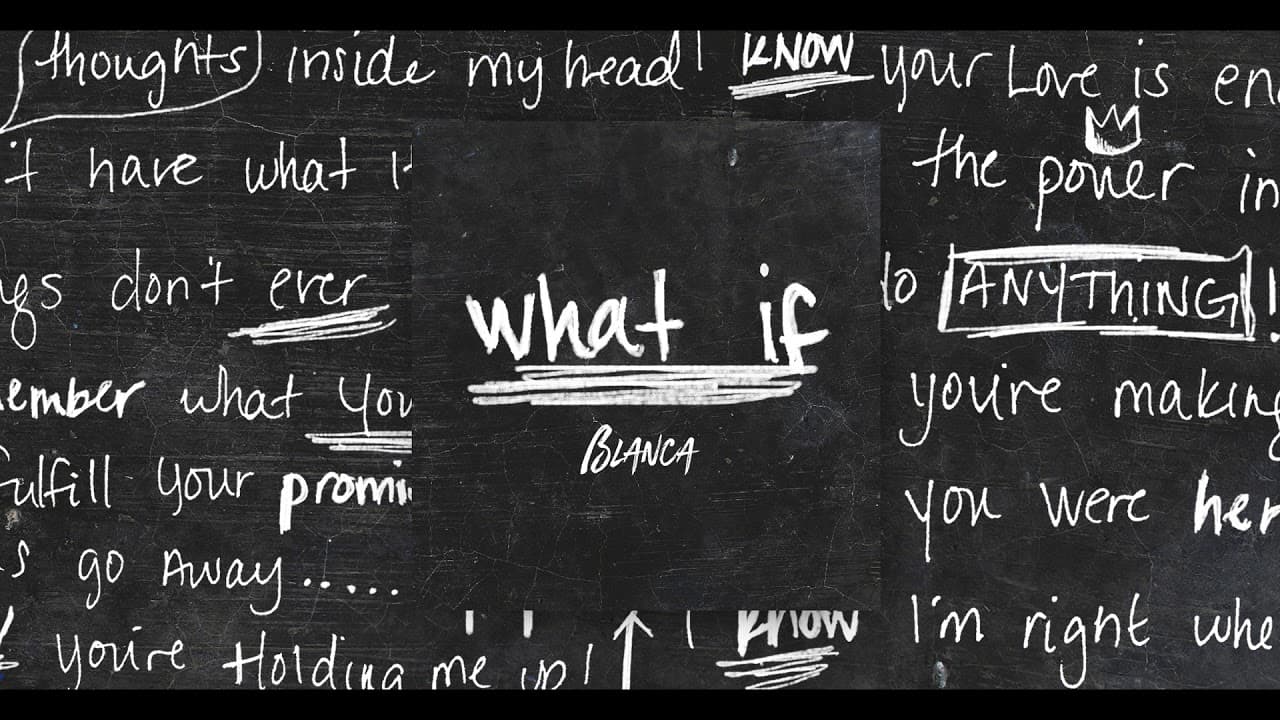 thoughts inside my head I KNOW your Love is
have what the power in
don't ever what if ANYTHING!
what you're making
fulfill your BLANCA you were
go AWAY.....
you're Holding me up! I KNOW I'm right